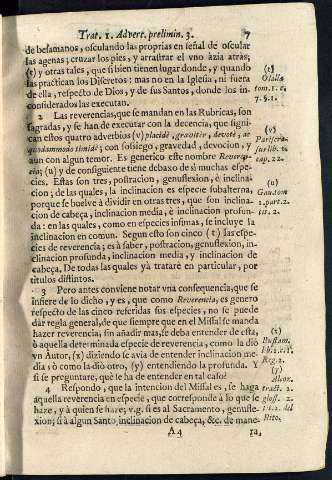 Trat. 1. Advert. prelimin. 3. 7
de besamanos, osculando las proprias en señal de oscular
las agenas; cruzar los pies, y arrastrar el vno àzia atràs;
(t) y otras tales, que si bien tienen lugar donde, y quando
las practican los Discretos: mas no en la Iglesia, ni fuera
de ella, respecto de Dios, y de sus Santos, donde los in-
considerados las executan.
2 Las reverencias, que se mandan en las Rubricas, son
sagradas, y se han de executar con la decencia, que signi-
can estos quatro adverbios (v) placidè, graviter, devotè, ac
quodammodo timidè; con sosiego, gravedad, devocion, y
aun con algun temor. Es generico este nombre Reveren-
cia; (u) y de consiguiente tiene debaxo de sì muchas espe-
cies. Estas son tres, postracion, genuflexion, è inclina-
cion; de las quales, la inclinacion es especie subalterna,
porque se buelve à dividir en otras tres, que son inclina-
cion de cabeça, inclinacion media, è inclinacion profun-
da: en las quales, como en especies infimas, se incluye la
inclinacion en comun. Segun esto son cinco (t) las espe-
cies de reverencia; es à saber, postracion, genuflexion, in-
clinacion profunda, inclinacion media, y inclinacion de
cabeça. De todas las quales yà tratarè en particular, por
titulos distintos.
3 Pero antes conviene notar vna consequencia, que se
infiere de lo dicho, y es, que como Reverencia, es genero
respecto de las cinco referidas sus especies, no se puede
dàr regla general, de que siempre que en el Missal se manda
hazer reverencia, sin añadir mas, se deba entender de esta,
ò aquella determinada especie de reverencia, como la diò
vn Autor, (x) diziendo se avia de entender inclinacion me-
dia; ò como la diò otro, (y) entendiendo la profunda. Y
si se preguntare, què le ha de entender en tal caso?
4 Respondo, que la intencion del Missal es, se haga
aquella reverencia en especie, que corresponde à lo que se
haze, y à quien se hare; v.g. si es al Sacramento, genufle-
xion; si à algun Santo, inclinacion de cabeça, &c. de mane-
A 4 ra,
(t)
Olalla
tom. 1. c.
7. §. 1.
(v)
cap. 22.
(u)
1. part. 2.
tit. 2.
(x)
Reg. 1.
(y)
tract. 2.
glos. 2.
del
Rito.